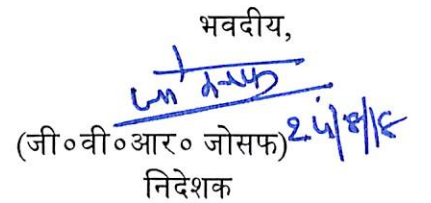 भवदीय,
(जी०वी०आर० जोसफ)
निदेशक